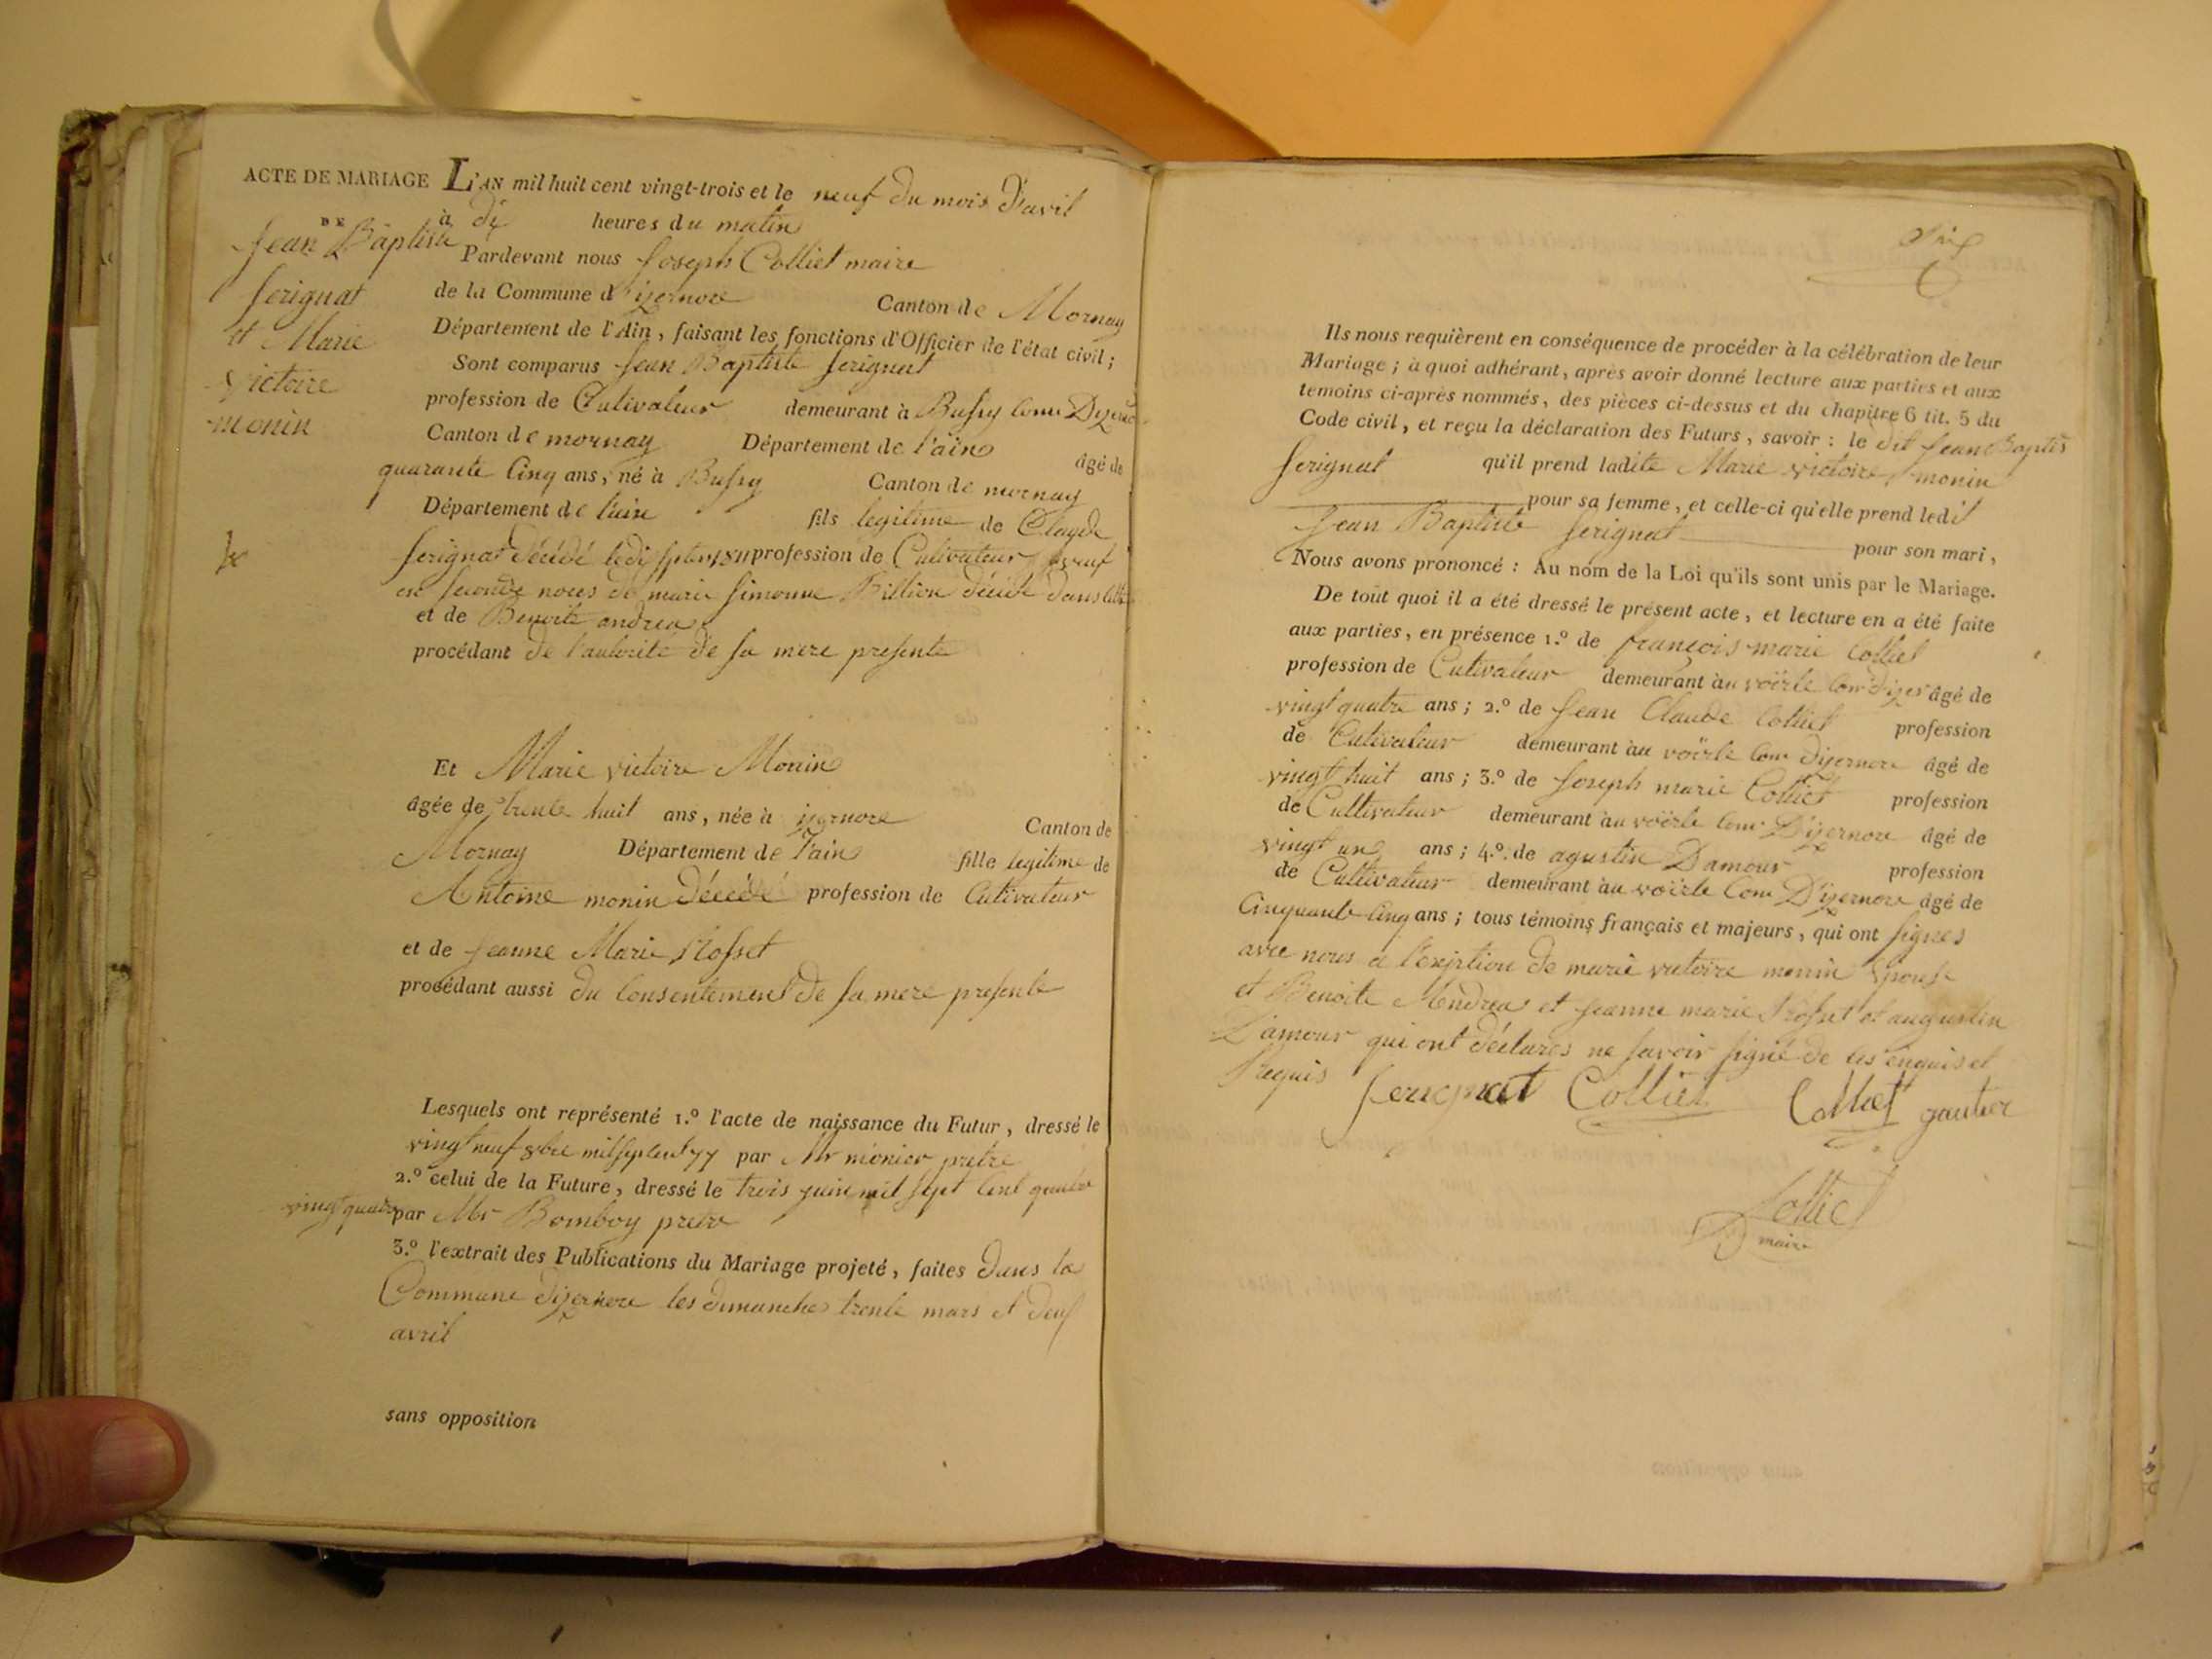 ACTE DE MARIAGE
DE
Jean Baptiste
ferignat
et Marie
victoire
monin
L'AN mil huit cent vingt-trois et le neuf du mois d'avril
à dix heures du matin
Pardevant nous Joseph Colliet maire
de la Commune d'izernore Canton de Mornay
Département de l'Ain, faisant les fonctions d'Officier de l'état civil;
Sont comparus Jean Baptiste ferignat
profession de Cutivateur demeurant à Bussy Comе
Canton de mornay Département de l'ain âgé de
quarante Cinq ans; né à Bussy Canton de mornay
Département de l'ain fils legitime de Claude
ferignat décédé profession de Cutivateur veuf
en seconde noces de marie simonne Billion décédé dans
et de Benoite andrea
procédant de l'autorité de sa mere presente
Et Marie victoire Monin
âgée de trente huit ans, née à izernore Canton de
Mornay Département de l'ain fille legitime de
Antoine monin décédé profession de Cutivateur
et de Jeanne Marie Rosset
procédant aussi du Consentement de sa mere presente
Lesquels ont représenté 1.º l'acte de naissance du Futur, dressé le
vingt neuf 8bre mil sept cent 77 par Mr monier pretre
2.º celui de la Future, dressé le trois juin mil sept Cent quatre
vingt quatre par Mr Bomboy pretre
3.º l'extrait des Publications du Mariage projeté, faites dans la
Commune dizernore les dimanches trente mars et
avril
sans opposition
Ils nous requièrent en conséquence de procéder à la célébration de leur
Mariage; à quoi adhérant, après avoir donné lecture aux parties et aux
temoins ci-après nommés, des pièces ci-dessus et du chapitre 6 tit. 5 du
Code civil, et reçu la déclaration des Futurs, savoir: le dit Jean Baptis
ferignat qu'il prend ladite Marie victoire monin
pour sa femme, et celle-ci qu'elle prend ledit
Jean Baptiste ferignat pour son mari,
Nous avons prononcé: Au nom de la Loi qu'ils sont unis par le Mariage.
De tout quoi il a été dressé le présent acte, et lecture en a été faite
aux parties, en présence 1.º de francois marie Colliet
profession de Cutivateur demeurant au voërle Com dizer âgé de
vingt quatre ans; 2.º de Jean Claude Colliet profession
de Cutivateur demeurant au voërle Com dizernore âgé de
vingt huit ans; 3.º de Joseph marie Colliet profession
de Cultivateur demeurant au voërle Com D'izernore âgé de
vingt un ans; 4.º de agustin Damour profession
de Cultivateur demeurant au voërle Com D'izernore âgé de
Cinquante Cinq ans; tous témoins français et majeurs, qui ont signes
avec nous a l'exeption de marie victoire monin Epouse
et Benoite Andrea et Jeanne marie Rosset et augustin
Damour qui ont déclares ne savoir signé de ces enquis et
Requis
ferignat Colliet Colliet gautier
Colliet
maire